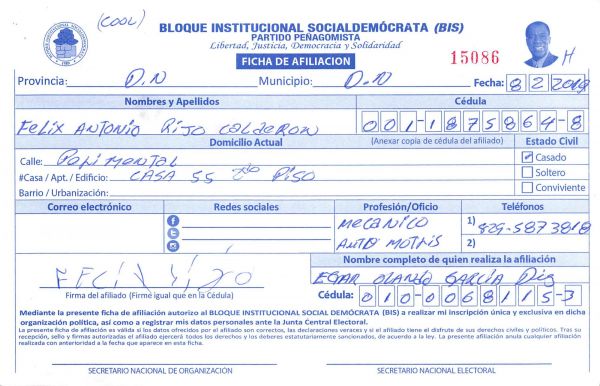 (COOL)
BLOQUE INSTITUCIONAL SOCIALDEMÓCRATA (BIS)
PARTIDO PEÑAGOMISTA
Libertad, Justicia, Democracia y Solidaridad
FICHA DE AFILIACION
15086
H
Provincia: D.N Municipio: D.N Fecha: 8 2 2019
Nombres y Apellidos Cédula
FELIX ANTONIO RIJO CALDERON 001-1875864-8
Domicilio Actual (Anexar copia de cédula del afiliado) Estado Civil
Calle: Pepimental Casado
#Casa / Apt. / Edificio: CASA 55 2do PISO Soltero
Barrio / Urbanización: Conviviente
Correo electrónico Redes sociales Profesión/Oficio Teléfonos
MECANICO 1) 829-5873818
AUTO MOTRIS 2)
Nombre completo de quien realiza la afiliación
FELIX RIJO EGAR OLANDO GARCÍA
Firma del afiliado (Firme igual que en la Cédula) Cédula: 010-0068115-3
Mediante la presente ficha de afiliación autorizo al BLOQUE INSTITUCIONAL SOCIAL DEMÓCRATA (BIS) a realizar mi inscripción única y exclusiva en dicha
organización política, así como a registrar mis datos personales ante la Junta Central Electoral.
La presente ficha de afiliación es válida si los datos ofrecidos por el afiliado son correctos, las declaraciones veraces y si el afiliado tiene el disfrute de sus derechos civiles y políticos. Tras su
recepción, sello y firmas autorizadas el afiliado ejercerá todos los derechos y los deberes estatutariamente sancionados, de acuerdo a la ley. La presente afiliación anula cualquier afiliación
realizada con anterioridad a la fecha que aparece en esta ficha.
SECRETARIO NACIONAL DE ORGANIZACIÓN SECRETARIO NACIONAL ELECTORAL